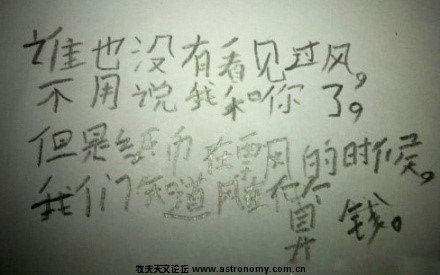 谁也没有看见过风，
不用说我和你了，
但是纸币在飘的时候，
我们知道风在算钱。
牧夫天文论坛 www.astronomy.com.cn